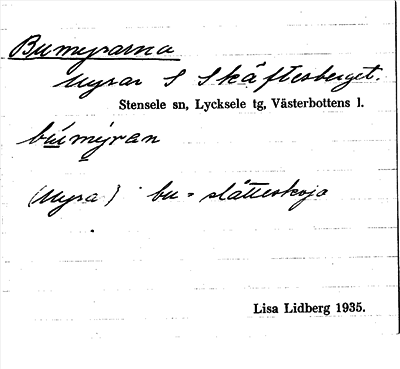 Bumyrarna
Myrar S Skäftesberget.
Stensele sn, Lycksele tg, Västerbottens l.
búmỳran
(Myra) bu = slåtteskoja
Lisa Lidberg 1935.